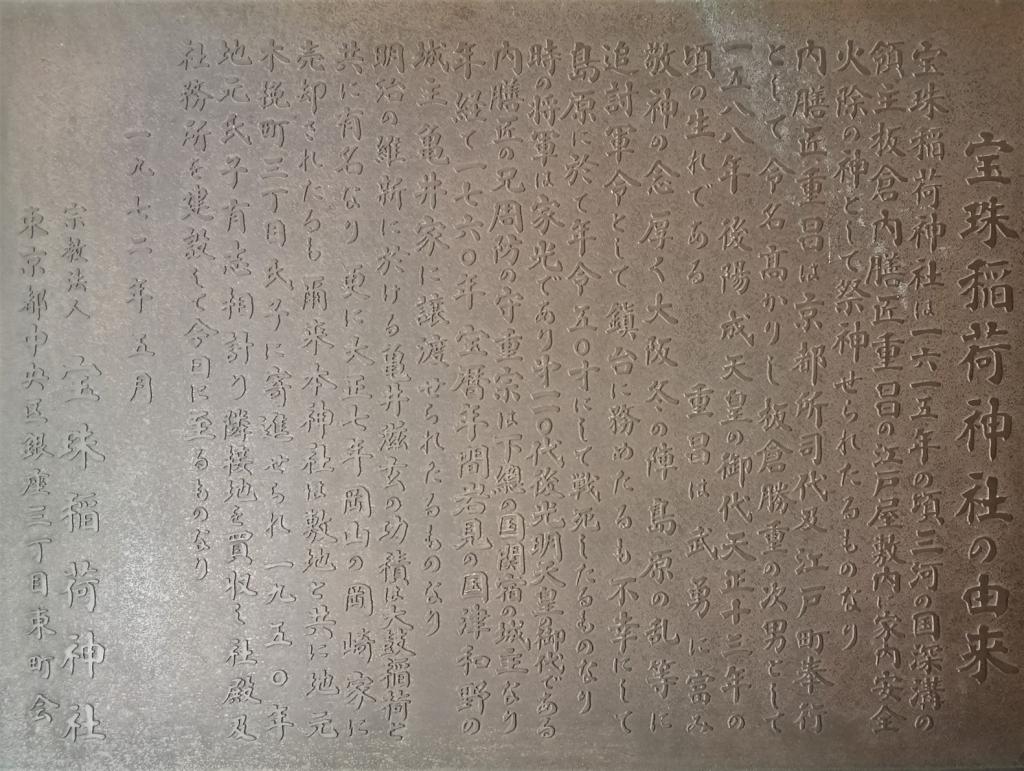 宝珠稲荷神社の由来
宝珠稲荷神社は一六一五年の頃三河の国深溝の
領主板倉内膳匠重昌の江戸屋敷内に家内安全
火除の神として祭神せられたるものなり
内膳匠重昌は京都所司代及江戸町奉行
として令名高かりし板倉勝重の次男として
一五八八年 後陽成天皇の御代天正十三年の
頃の生れである 重昌は武勇に富み
敬神の念厚く大阪冬の陣島原の乱等に
追討軍令として鎮台に務めたるも不幸にして
島原に於て年令五〇才にして戦死したるものなり
時の将軍は家光であり才一一〇代後光明天皇の御代である
内膳匠の兄周防の守重宗は下總の国関宿の城主なり
年経て一七六〇年宝暦年間岩見の国津和野の
城主亀井家に譲渡せられたるものなり
明治の維新に於ける亀井滋玄の功積は太鼓稲荷と
共に有名なり 更に大正七年岡山の岡崎家に
売却されたるも爾来本神社は敷地と共に地元
木挽町三丁目氏子に寄進せられ一九五〇年
地元氏子有志相計り隣接地を買収し社殿及
社務所を建設して今日に至るものなり
一九七二年五月
宗教法人 宝珠稲荷神社
東京都中央区銀座三丁目東町会